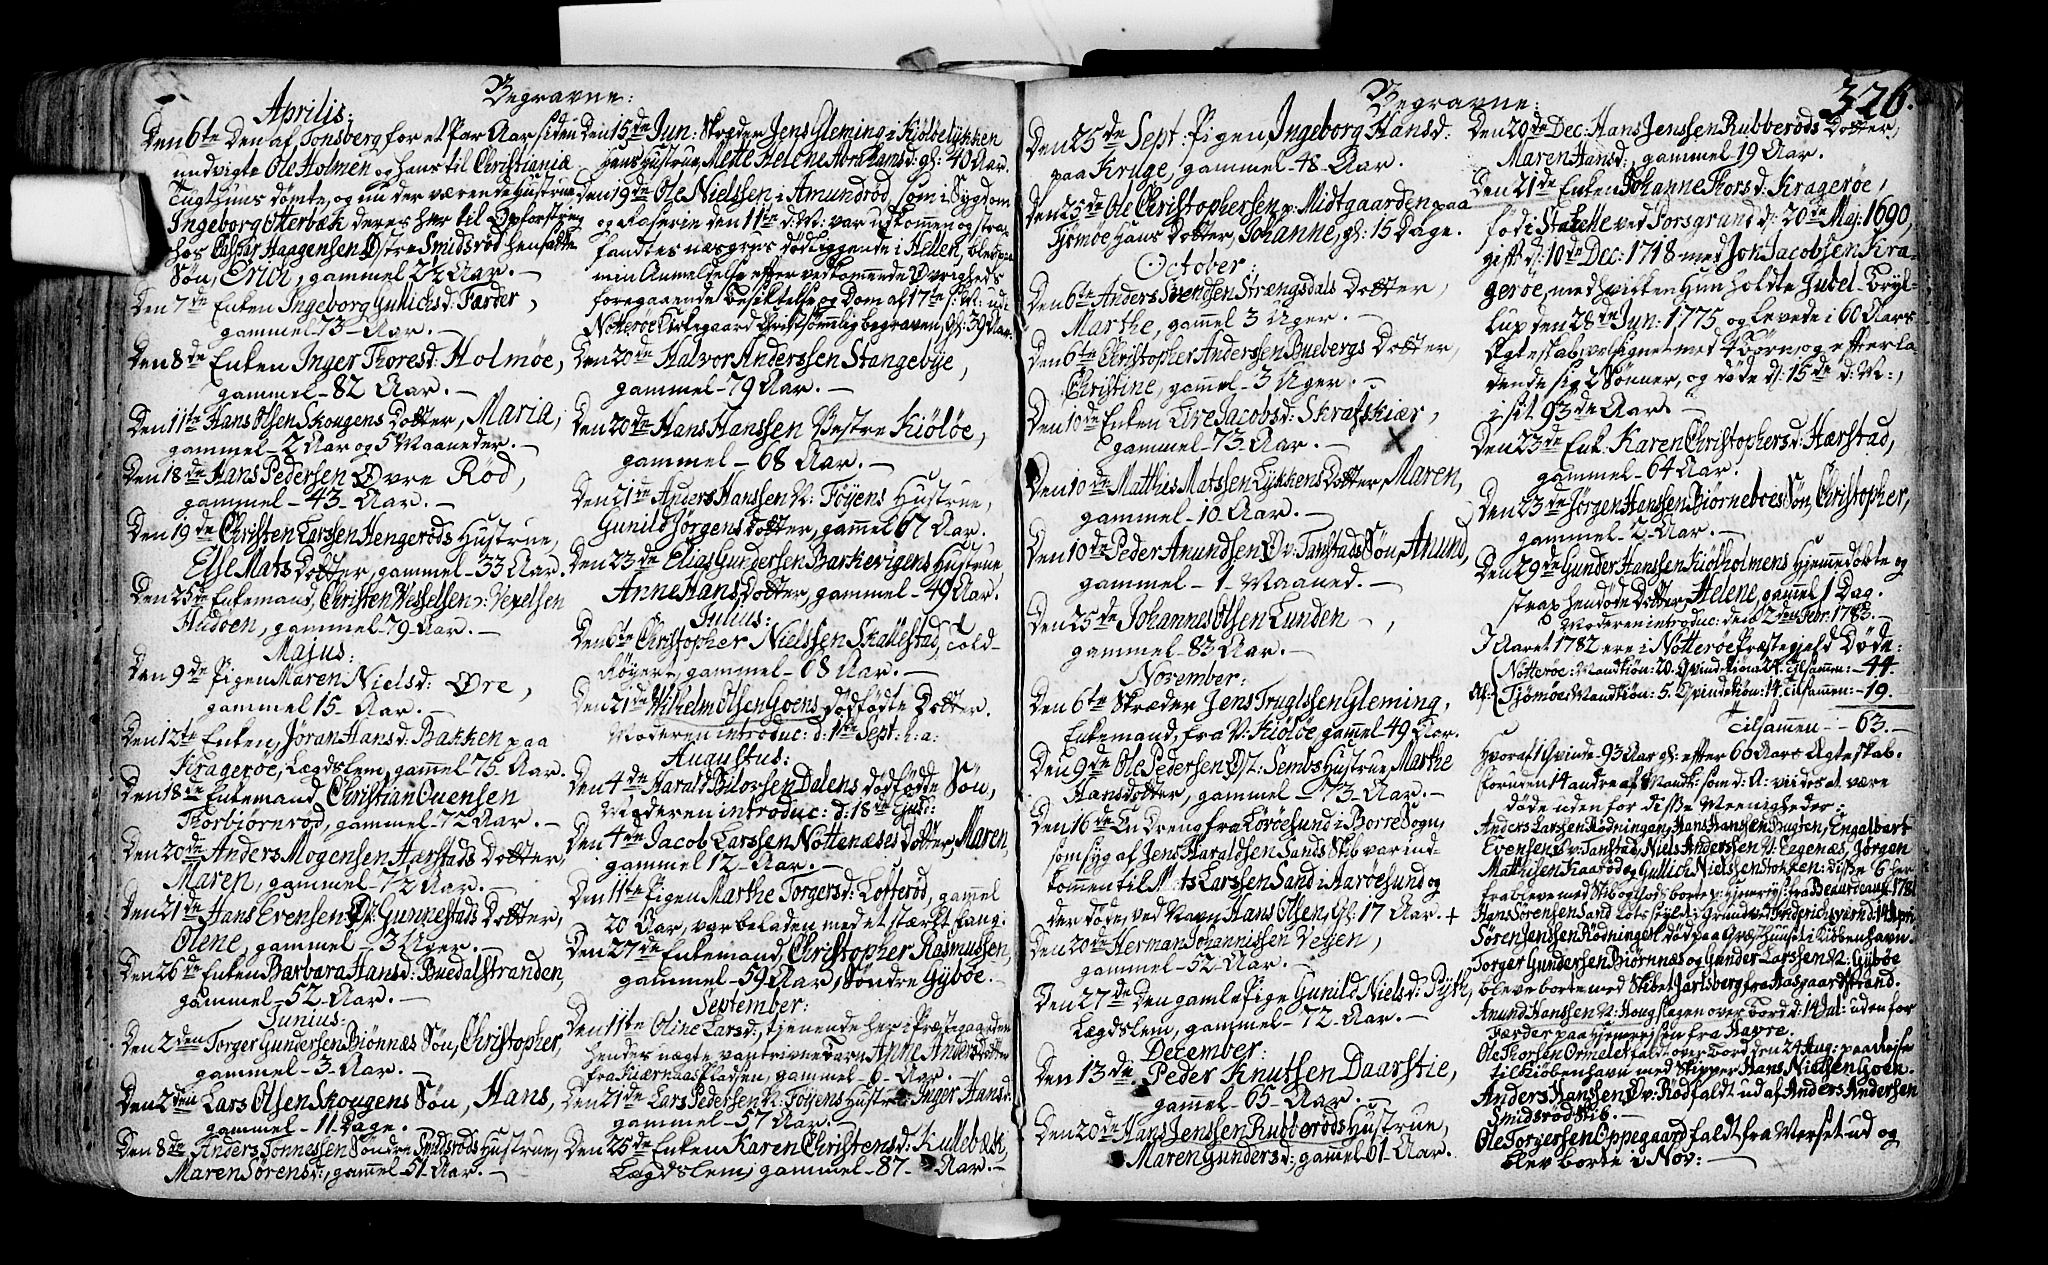 Begravne:
Aprilis:
Den 6te Den af Tonsberg for et Par Aar siden
undvigte Ole Holmen og hans til Christiania
Tugthuus dømte, og nu der værende Hustrue
Ingeborg Otterbæk deres her til Opfostring
hos Casper Haagensen Østre Smidsrød hensatte
Søn, Enoch, gammel 2½ Aar. —
Den 7de Enken Ingeborg Gullichsd: Færder,
gammel 73 Aar. —
Den 8de Enken Inger Thoresd: Holmøe,
gammel 82 Aar. —
Den 11te Hans Olsen Skougens Dotter, Maria,
gammel 2 Aar og 5 Maaneder. —
Den 18de Hans Pedersen Øvre Rød,
gammel 43 Aar. —
Den 19de Christen Larssen Hengerøds Hustrue,
Else Mats Dotter, gammel 33 Aar.
Den 25de Enkemand, Christen Wesselsen v: Vexelsen
Hudøen, gammel 79 Aar. —
Majus:
Den 9de Pigen Maren Nielsd: Øre,
gammel 15 Aar. —
Den 12te Enken, Jøran Hansd: Bakken paa
Kragerøe, Lægdslem, gammel 75 Aar.
Den 18de Enkemand Christian Ouensen
Thorbiørnrød, gammel 72 Aar. —
Den 20de Anders Mogensen Hærstads Dotter,
Maren, gammel 7½ Aar. —
Den 21de Hans Evensen Øv: Gunnestads Dotter,
Olene, gammel 3 Uger. —
Den 26de Enken Barbara Hansd: Buedalstranden,
gammel 52 Aar. —
Junius:
Den 2den Torger Gundersen Biønnæs Søn, Christopher,
gammel 3 Aar. —
Den 2den Lars Olsen Skougens Søn, Hans,
gammel 11 Dage. —
Den 8de Anders Tønnessen Søndre Smidsrøds Hustrue,
Maren Sørensd:, gammel 51 Aar. —
Den 15de Jun: Skræder Jens Gleming i Kiøløeløkken
hans Hustrue, Mette Helene Abrahamsd: gl: 40 Aar.
Den 19de Ole Nielssen i Amundrød, som i Sygdom
og Raserie den 11te d: M: var udkommen og strax
fandtes næsgrus død liggende i Hellen, blev paa
min Anmeldelse efter vedkommende Øvrigheds
foregaaende Besiktelse og Dom af 17te s: M: ud i
Nøtterøe Kirkegaard Christsømmelig begraven, gl: 39 Aar.
Den 20de Halvor Anderssen Stangebye,
gammel 79 Aar. —
Den 20de Hans Hanssen Vestre Kiøløe,
gammel 68 Aar. —
Den 21de Anders Hanssen N: Føyens Hustrue,
Gunild Jørgens Dotter, gammel 67 Aar.
Den 23de Elias Gundersen Barkevigens Hustrue
Anne Hans Dotter, gammel 49 Aar.
Julius:
Den 6te Christopher Nielssen Skallestad, Told-
Røyert, gammel 68 Aar. —
Den 21de Wilhelm Olsen Goens dødfødte Dotter.
Moderen introduc: d: 1te Sept: h: a:
Augustus:
Den 4de Haralt Bilovsen Dalens dødfødde Søn,
Moderen introduc: d: 18de ejusd:
Den 4de Jacob Larssen Nottenæses Dotter, Maren,
gammel 12 Aar. —
Den 11te Pigen Marthe Torgersd: Lofterød, gammel
20 Aar, var beladen med et stærkt fang.
Den 27de Enkemand, Christopher Rasmussen,
gammel 59 Aar, Søndre Gybøe.
September:
Den 11te Oline Larsd:, tjenende her i Præstegaarden
hendes uægte vantrivne Barn Anne Andersdotter
fra Kiærnaas Pladsen, gammel 6 Aar. —
Den 21de Lars Pedersen N: Føyens Hustr: Inger Hansd:
gammel 57 Aar. —
Den 25de Enken Karen Christensd: Kullebæk,
Lægdslem, gammel 87 Aar. —
Begravne:
326.
Den 25de Sept: Pigen, Ingeborg Hansd:
paa Kruge, gammel 48 Aar.
Den 25de Ole Christophersen v: Midtgaarden paa
Tjømøe hans Dotter, Johanne, gl: 15 Dage.
October:
Den 6te Anders Svendsen Strængsdals Dotter,
Marthe, gammel 3 Uger. —
Den 6te Christopher Anderssen Buebergs Dotter,
Christine, gammel 3 Uger. —
Den 10de Enken Live Jacobsd: Skrafskiær,
gammel 73 Aar. —
Den 10de Matthis Matssen Lykkens Dotter, Maren,
gammel 10 Aar. —
Den 10de Peder Amundsen Øv: Tanstads Søn, Amund,
gammel 1 Maaned. —
Den 25de Johannes Olsen Lunden —,
gammel 83 Aar. —
November:
Den 6te Skræder Jens Truglssen Gleming,
Enkemand, fra V: Kiøløe, gammel 49 Aar.
Den 9de Ole Pedersen Øst: Sembs Hustrue, Marthe
Hansdotter, gammel 73 Aar. —
Den 16de En Dreng fra Løvøesund i Borre Sogn,
som syg af Jens Haraldsen Sands Skib var ind-
kommen til Mats Larssen Sand i Aarøesund og
der døde, ved Navn Hans Olsen, gl: 17 Aar. +
Den 20de Herman Johannissen Vegen,
gammel 52 Aar. —
Den 27de Den gamle Pige Gunild Nielsd: Pyth,
Lægdslem, gammel 72 Aar. —
December:
Den 13de Peder Knutsen Daarstie,
gammel 65 Aar. —
Den 20de Hans Jenssen Rubberøds Hustrue,
Maren Gundersd: gammel 61 Aar.
Den 20de Dec: Hans Jenssen Rubberøds Dotter,
Maren Hansd:, gammel 19 Aar.
Den 21de Enken Johanne Thorsd: Kragerøe,
fød i Stathelle ved Porsgrund d: 20de Maj: 1690,
gift d: 10de Dec: 1718 med Jon Jacobsen Kra-
gerøe, med hvilken hun holdte Jubel-Bryl-
lup den 28de Jun: 1775 og levede i 60 Aars
Ægteskab, velsignet med 4 Børn, og efterla-
dende sig 2 Sønner, og døde d: 15de d: M:,
i sit 93de Aar. —
Den 23de Enk: Karen Christophersd: Hærstad,
gammel 64 Aar.
Den 23de Jørgen Hanssen Biørneboes Søn, Christopher,
gammel 5 Aar. —
Den 29de Gunder Hanssen Kiølholmens Hjemmedøbte og
strax hendøde Dotter, Helene, gammel 1 Dag.
Moderen introduc: den 2den Febr: 1783.
I Aaret 1782 ere i Nøtterøe Præstegield Døde:
Af: Nøtterøe: Mandkiøn: 20. Qvindekiøn: 24. tilsammen: 44.
Tjømøe Mandkiøn: 5. Qvindekiøn: 14. tilsammen: 19.
Tilsammen — 63. —
Hvoraf 1 Qvinde 93 Aar gl: efter 60 Aars Ægteskab.
foruden 14 andre af Mandk: som d: A: vides at være
døde uden for disse Meenigheder:
Anders Larssen Rødningen, Hans Hanssen Bugten, Engelbret
Evensen Øv: Tanstad, Niels Anderssen V: Eegenæs, Jørgen
Mathisen Kaarød og Gullich Nielssen Stokken: disse 6 her
fra bleve med Skib og Gods borte p: Hjemrejs: fra Beaurdeaux 1781.
Hans Sørensen Sand Lots skyldt i Grund ved Friderichsværn d: 14 Apri
Søren Jenssen Rødningen død paa Qvæsthuuset i Kiøbenhavn.
Torger Gundersen Biørnnæs og Gunder Larssen N: Gybøe
bleve borte med Skibet Jarlsberg fra Aasgaardstrand.
Amund Hanssen N: Houg slagen over bord d: 14 Jul: uden for
Færder paa Hjemrejsen fra Havre.
Ole Thorsen Ormelet faldt over bord den 24 Aug: paa Rejse
til Kiøbenhavn med Skipper Hans Nielssen Goen.
Anders Hanssen Øv: Rød faldt ud af Anders Andersen
Smidsrød Skib. —
Ole Torgersen Oppegaard faldt fra Værfet ud og
blev borte i Nov: —